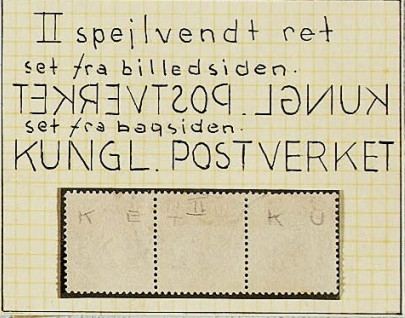 II spejlvendt ret
set fra billedsiden.
KUNGL. POSTVERKET
set fra bagsiden.
KUNGL. POSTVERKET
K E II K U